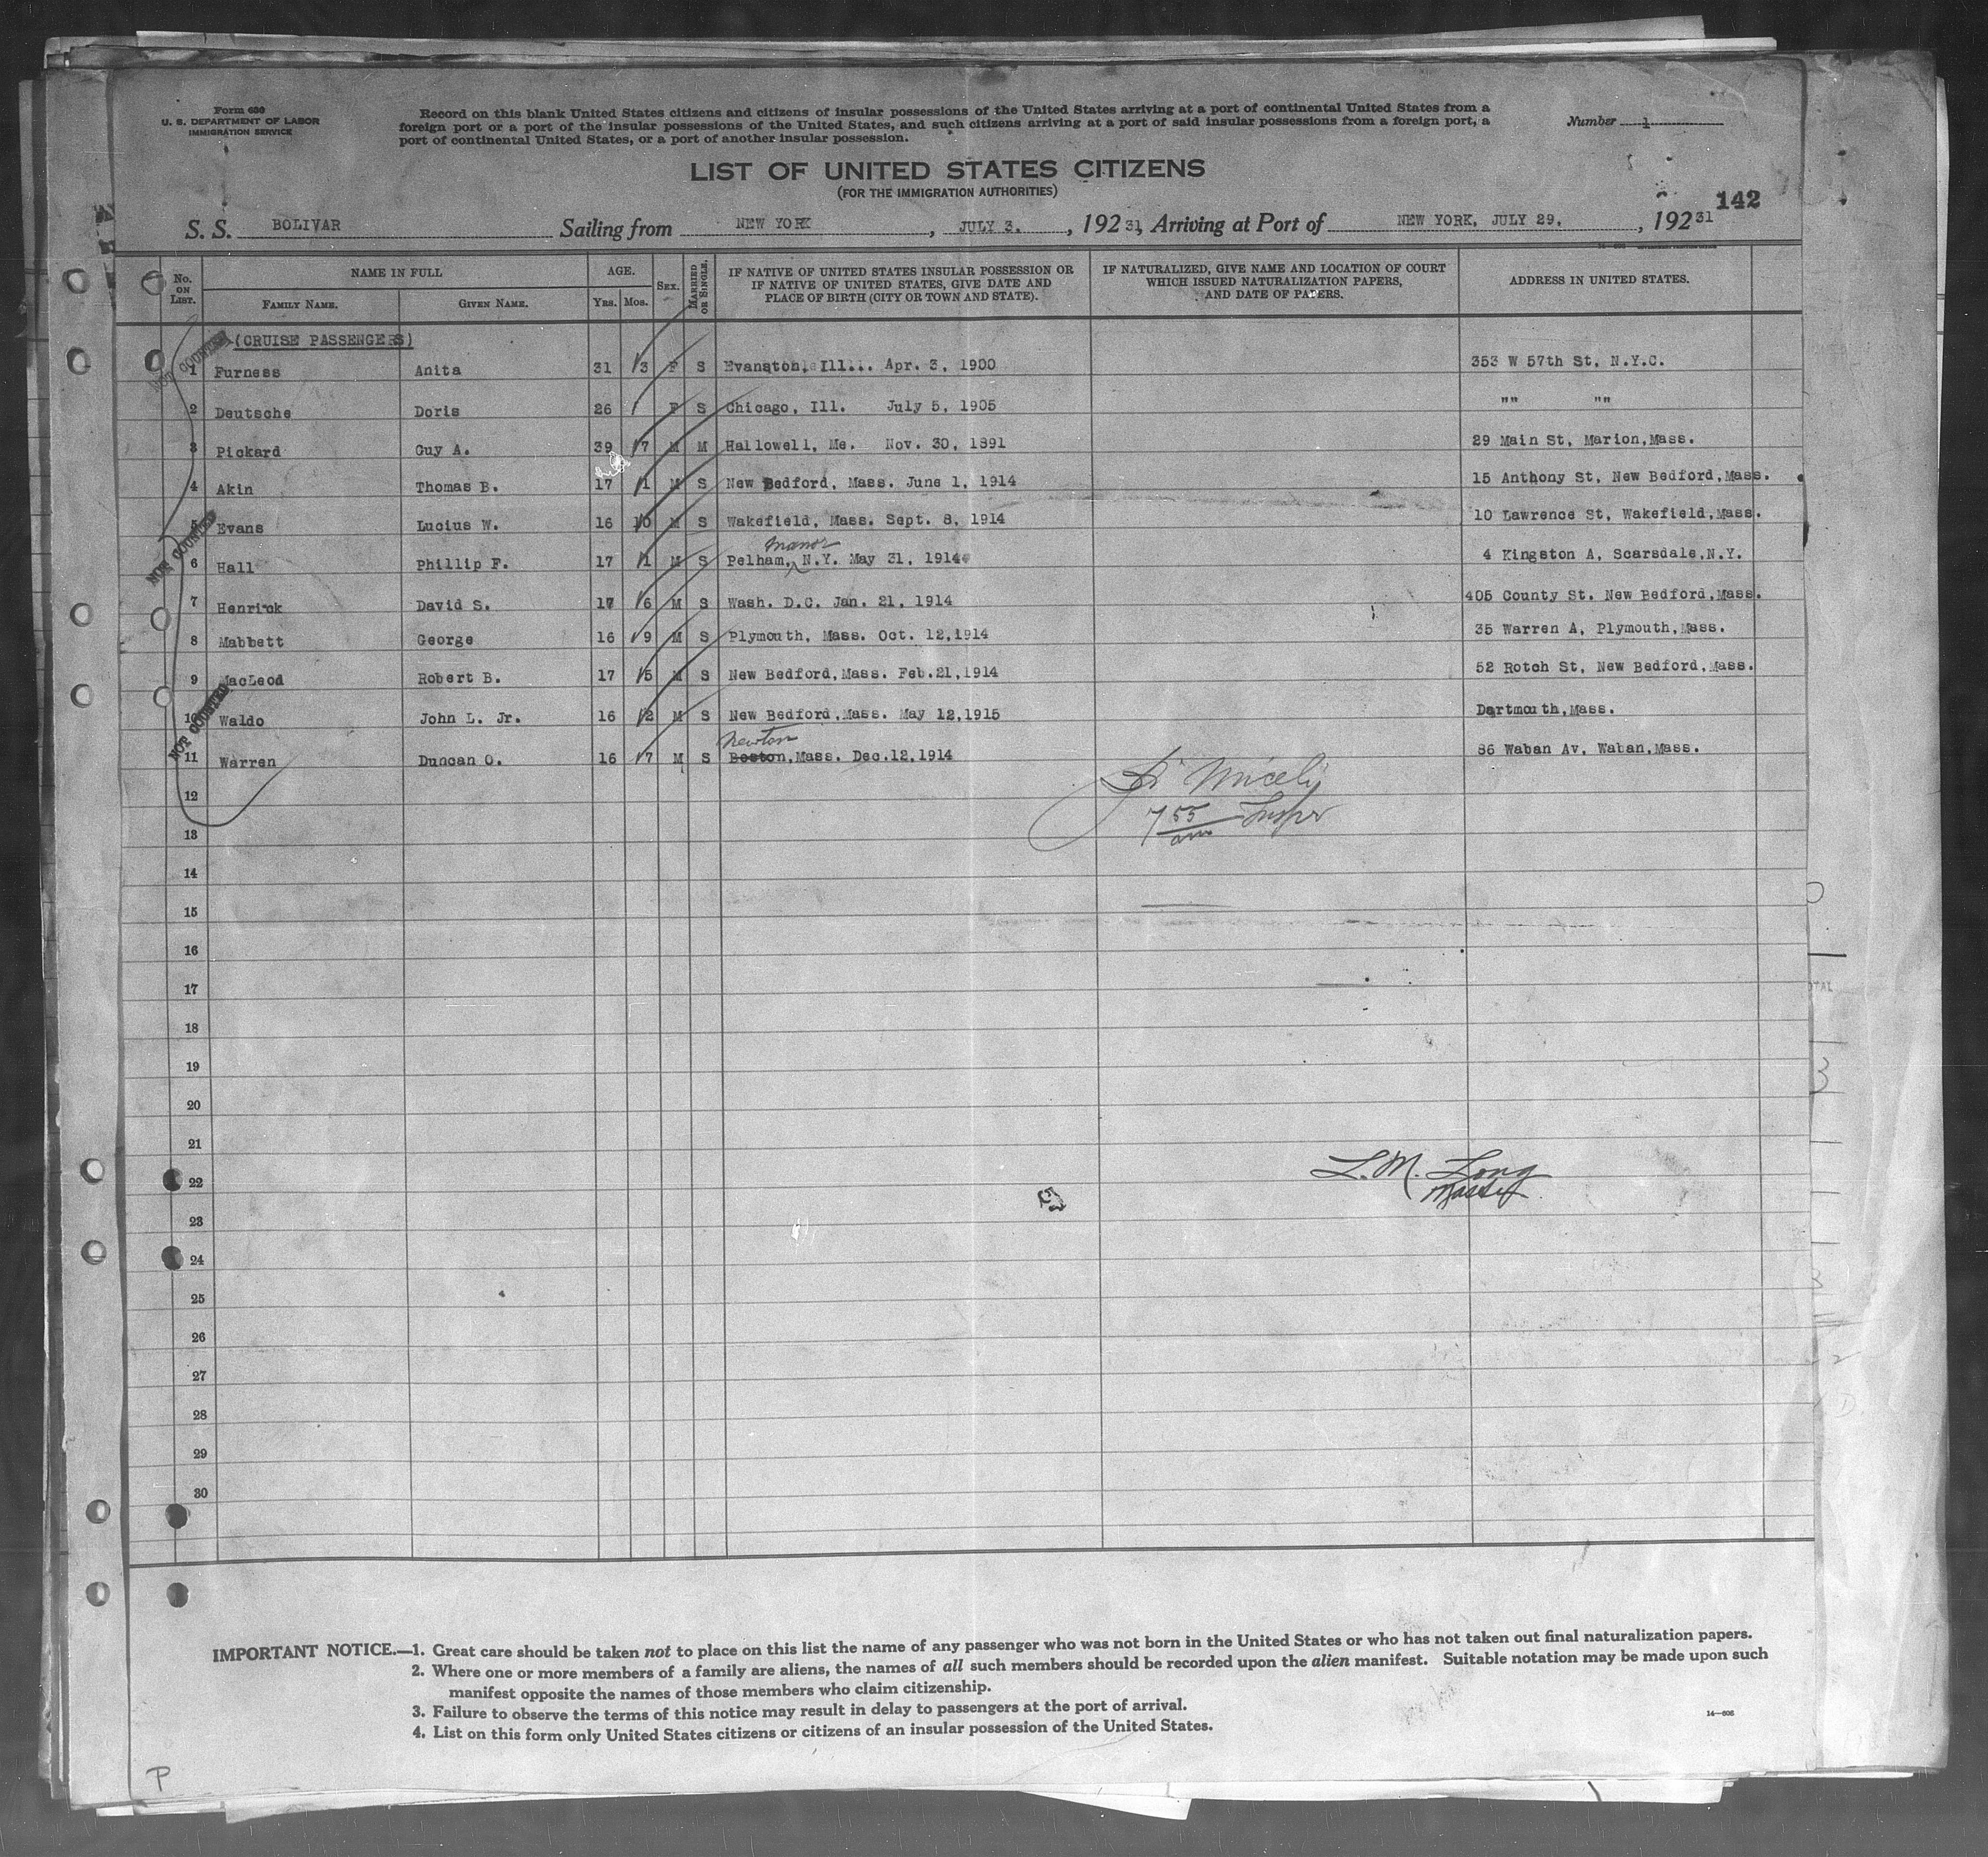 Form 630
U. S. DEPARTMENT OF LABOR
IMMIGRATION SERVICE
Record on this blank United States citizens and citizens of insular possessions of the United States arriving at a port of continental United States from a
foreign port or a port of the insular possessions of the United States, and such citizens arriving at a port of said insular possessions from a foreign port, a
port of continental United States, or a port of another insular possession.
Number 1
LIST OF UNITED STATES CITIZENS
(FOR THE IMMIGRATION AUTHORITIES)
142
S. S. BOLIVAR Sailing from NEW YORK, JULY 3, 192 31, Arriving at Port of NEW YORK, JULY 29, 192 31
No. ON LIST. NAME IN FULL AGE. SEX. MARRIED OR SINGLE. IF NATIVE OF UNITED STATES INSULAR POSSESSION OR IF NATIVE OF UNITED STATES, GIVE DATE AND PLACE OF BIRTH (CITY OR TOWN AND STATE). IF NATURALIZED, GIVE NAME AND LOCATION OF COURT WHICH ISSUED NATURALIZATION PAPERS, AND DATE OF PAPERS. ADDRESS IN UNITED STATES.
FAMILY NAME. GIVEN NAME. YRS. MOS.
(CRUISE PASSENGERS)
NOT COUNTED
1 Furness Anita 31 3 F S Evanston, Ill... Apr. 3, 1900 353 W 57th St, N.Y.C.
2 Deutsche Doris 26 F S Chicago, Ill. July 5, 1905 "" ""
3 Pickard Guy A. 39 7 M M Hallowell, Me. Nov. 30, 1891 29 Main St, Marion,Mass.
4 Akin Thomas B. 17 1 M S New Bedford, Mass. June 1, 1914 15 Anthony St, New Bedford,Mass.
NOT COUNTED
5 Evans Lucius W. 16 10 M S Wakefield, Mass. Sept. 8, 1914 10 Lawrence St, Wakefield,Mass.
Manor
6 Hall Phillip F. 17 1 M S Pelham, N.Y. May 31, 1914 4 Kingston A, Scarsdale,N.Y.
7 Henrick David S. 17 6 M S Wash. D.C. Jan. 21, 1914 405 County St. New Bedford,Mass.
8 Mabbett George 16 9 M S Plymouth, Mass. Oct. 12,1914 35 Warren A, Plymouth,Mass.
9 MacLeod Robert B. 17 5 M S New Bedford,Mass. Feb.21,1914 52 Rotch St, New Bedford,Mass.
NOT COUNTED
10 Waldo John L. Jr. 16 2 M S New Bedford,Mass. May 12,1915 Dartmouth,Mass.
Newton
11 Warren Duncan O. 16 7 M S Boston,Mass. Dec.12,1914 86 Waban Av, Waban,Mass.
12
Miceli
13
7 55 am Inspr
14
15
16
17
18
19
20
21
L. M. Long
22
Master
23
24
25
26
27
28
29
30
IMPORTANT NOTICE.—1. Great care should be taken not to place on this list the name of any passenger who was not born in the United States or who has not taken out final naturalization papers.
2. Where one or more members of a family are aliens, the names of all such members should be recorded upon the alien manifest. Suitable notation may be made upon such
manifest opposite the names of those members who claim citizenship.
3. Failure to observe the terms of this notice may result in delay to passengers at the port of arrival.
4. List on this form only United States citizens or citizens of an insular possession of the United States.
14—606
P